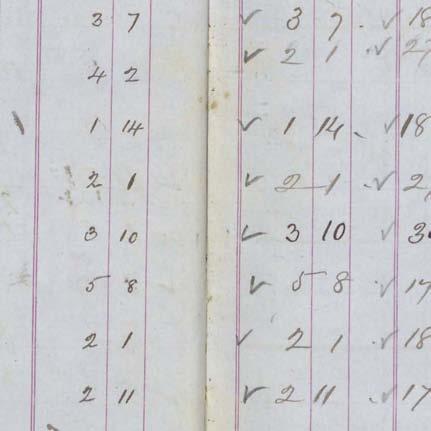 3 7 ✓ 3 7 . ✓ 18
✓ 2 1 . ✓
4 2
1 14 ✓ 1 14 . ✓ 18
2 1 ✓ 2 1 . ✓ 2
3 10 ✓ 3 10 ✓ 3
5 8 ✓ 5 8 . ✓ 17
2 1 ✓ 2 1 . ✓ 18
2 11 ✓ 2 11 . ✓ 17